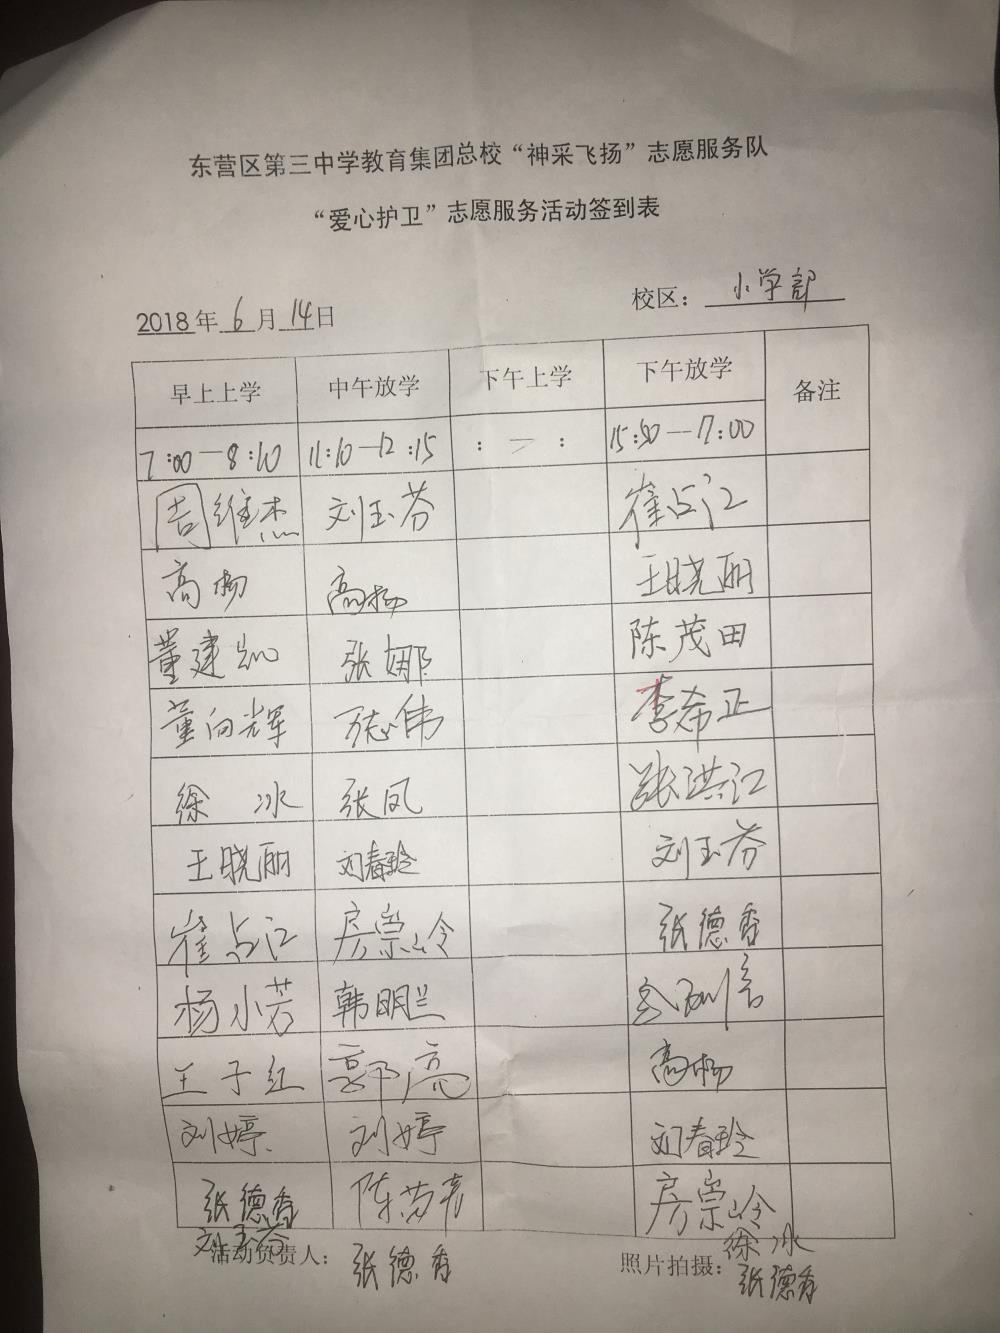 东营区第三中学教育集团总校“神采飞扬”志愿服务队
“爱心护卫”志愿服务活动签到表
2018年6月14日 校区：小学部
早上上学 中午放学 下午上学 下午放学 备注
7:00—8:10 11:10—12:15 :—: 15:50—17:00
周维杰 刘玉芬 崔占江
高杨 高杨 王晓丽
董建凯 张娜 陈茂田
董向辉 张伟 李希正
徐冰 张凤 张洪江
王晓丽 刘春玲 刘玉芬
崔占江 房崇岭 张德香
杨小芳 韩明兰
王子红 郭亮 高杨
刘婷 刘婷 刘春玲
张德香 陈 房崇岭
刘玉芬 徐冰
活动负责人：张德香 照片拍摄：张德香